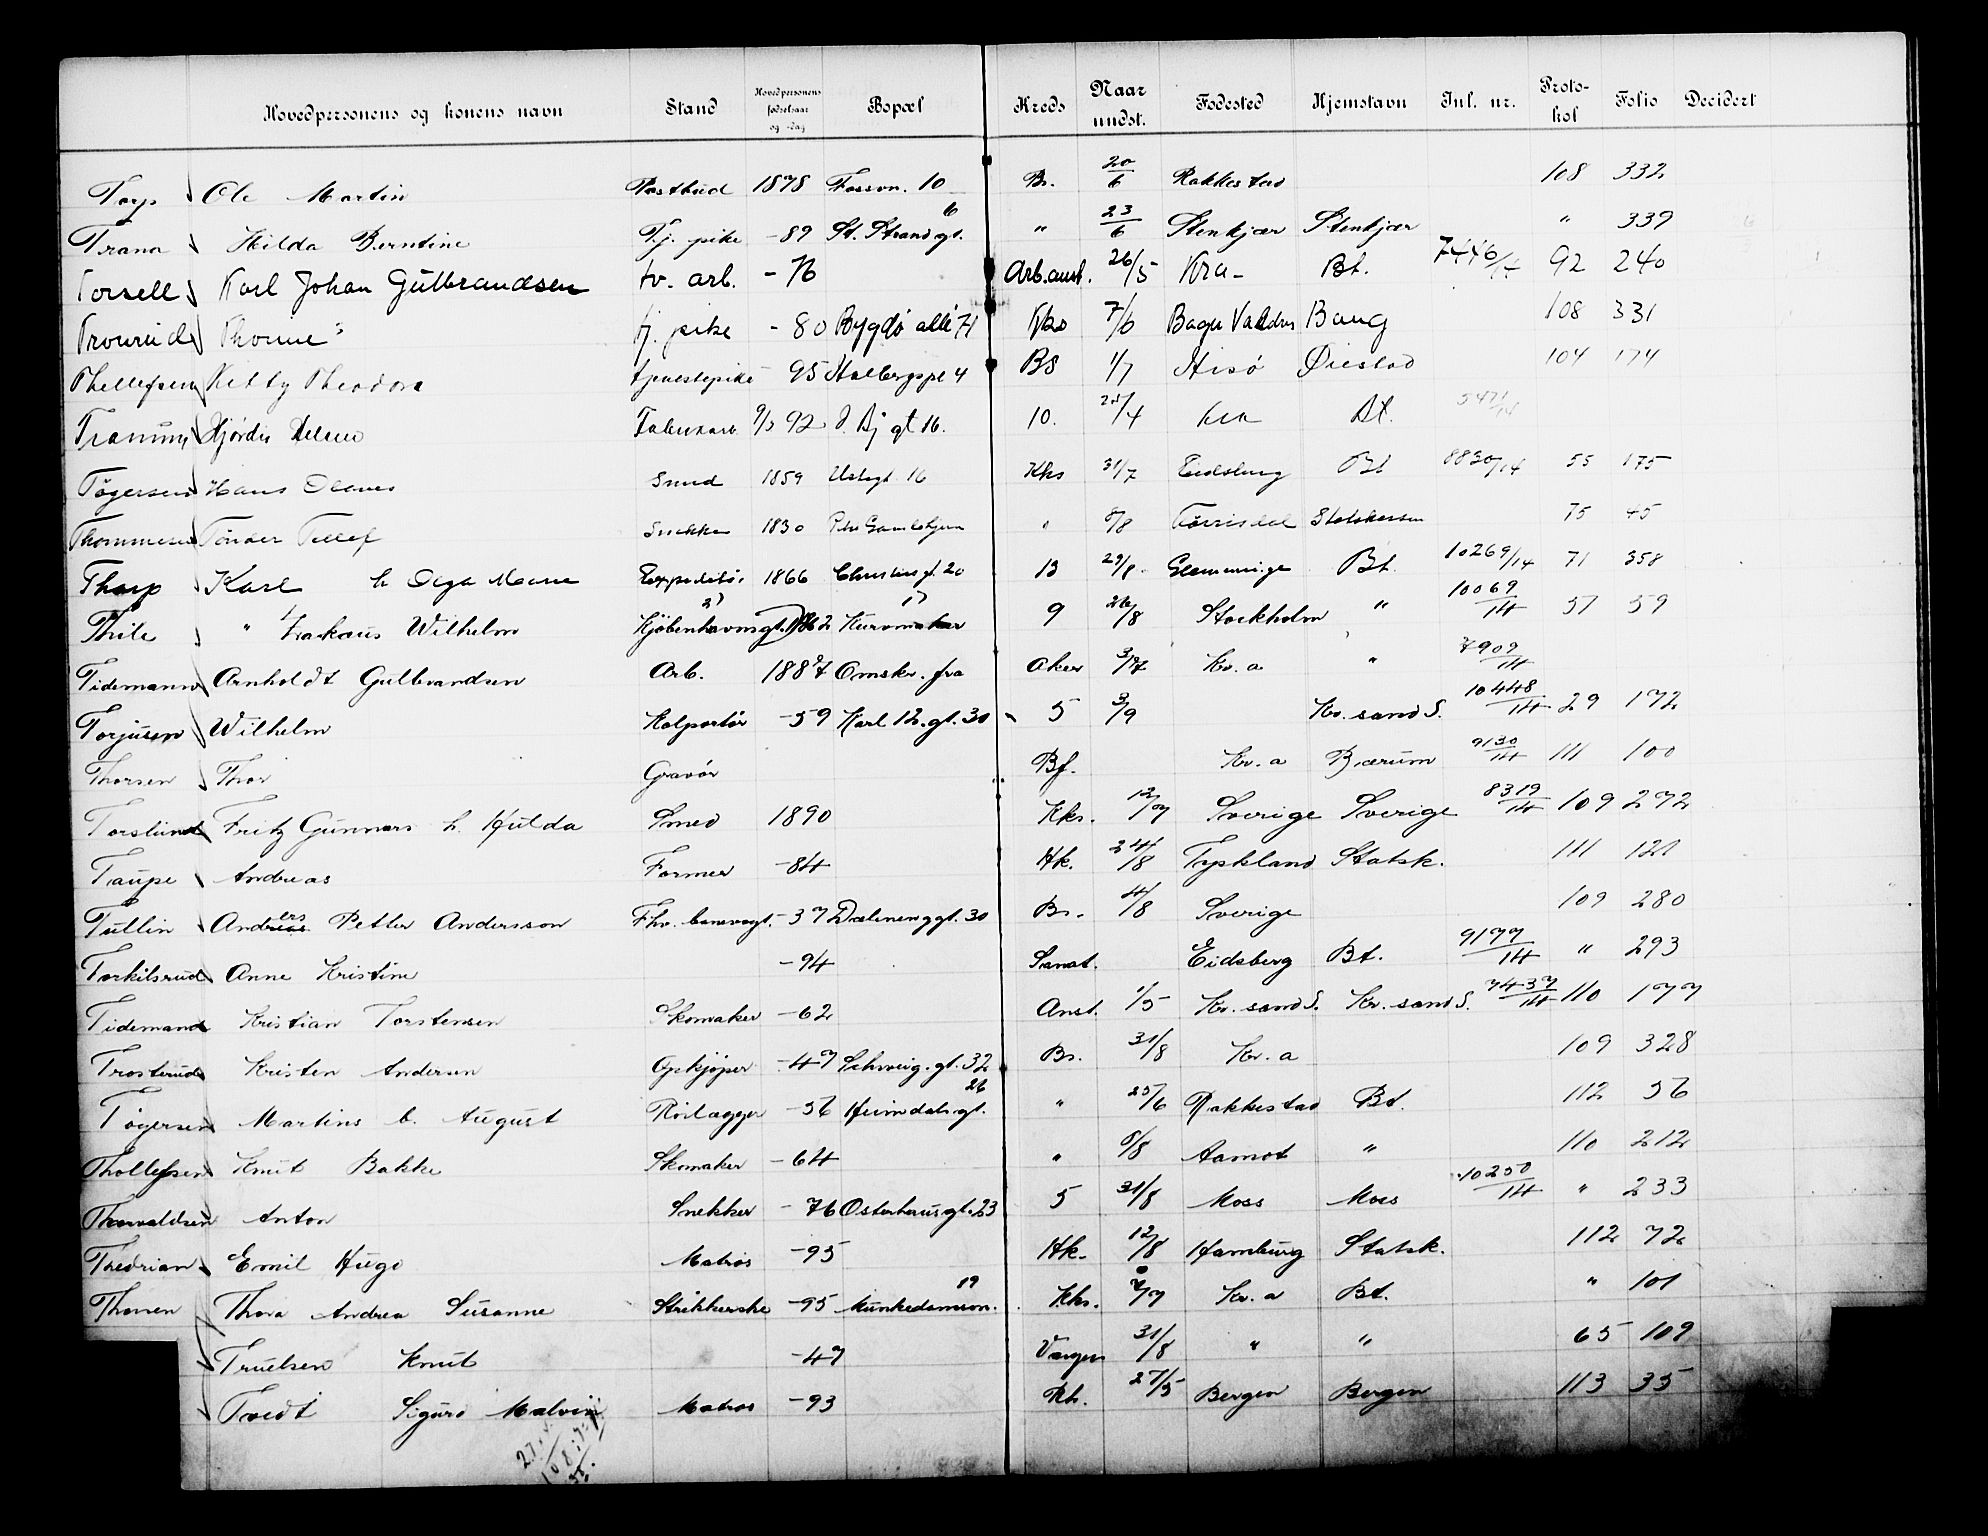 Hovedpersonens og konens navn Stand Hovedpersonens fødselsaar og -dag Bopæl Kreds Naar undst. Fødested Hjemstavn Inl. nr. Protokol Folio Decidert
Torp Ole Martin Postbud 1878 Fossv. 10 Br. 20/6 Rakkestad 108 332
Trana Hilda Berntine Tj. pike -89 St. Strandgt. 6 " 23/6 Stenkjær Stenkjær " 339
Torsell Karl Johan Gulbrandsen fv. arb. -76 Arb.anst. 26/5 Kra- Bt. 7446/14 92 240
Trourud Thorine tj. pike -80 Bygdø allé 71 7/6 Bagn Valdres Baug 108 331
Thellefsen Kitty Theodora tjenestepike 95 Holbergspl 4 BS 1/7 Hisø Øiestad 104 174
Hjørdis Fabrikarb. 92 gt 16. 10. /4 Kra Bt. 5471/14
Tøgersen Hans Smed 1859 16 Kks 31/7 Eidsberg Bt 8830/14 55 175
Thommesen Tønder Tellef Snekker 1830 Gamlehjem " 8/8 75 45
Thorp Karl h Olga Marie Expeditør 1866 Christiesgt. 20 13 29/8 Glemminge Bt. 10269/14 71 358
Thile " Wilhelm Kjøbenhavnsgt. 1862 Kurvmaker 9 26/8 Stockholm " 10069/14 57 59
Tidemann Arnholdt Gulbrandsen Arb. 1887 Omskr. fra Aker 3/7 Kr.a " 7909/14
Torjusen Wilhelm Kolportør -59 Karl 12. gt. 30 5 3/9 Kr.sand S. 10448/14 29 172
Thorsen Thor Gravør Bf. Kr.a Bærum 9130/14 111 100
Torslund Fritz Gunnars h. Hulda Smed 1890 Kks. 12/7 Sverige Sverige 8319/14 109 272
Taupe Andreas Former -84 Hk. 24/8 Tyskland Statsk. 111 121
Tullin Anders Petter Andersson Fhv. banevogt. -37 Dælenenggt. 30 Br. 4/8 Sverige 109 280
Torkilsrud Anne Kristine -94 Sanat. Eidsberg Bt. 9177/14 " 293
Tidemand Kristian Torstensen Skomaker -62 Anst. 1/5 Kr.sand S. Kr.sand S. 7437/14 110 177
Trosterud Kristen Andersen Opkjøper -47 Schweig.gt. 32 Br. 31/8 Kr.a 109 328
Tøgersen Martins b. August Rørlægger -56 Heimdalsgt. 26 " 25/6 Rakkestad Bt. 112 56
Thollefsen Knut Bakke Skomaker -64 " 8/8 Aamot " 110 212
Thorvaldsen Anton Snekker -76 Osterhausgt. 23 5 31/8 Moss Moss 10250/14 " 233
Thedrian Emil Hugo Matros -95 Hk. 12/8 Hamburg Statsk. 112 72
Thonen Thora Andrea Susanne Strikkerske -95 Munkedamsvn. 19 Kks. 7/7 Kr.a Bt. " 101
Truelsen Knut -47 Vargen 31/8 " " 65 109
Tvedt Sigurd Malvin Matros -93 Kh. 27/5 Bergen Bergen 113 35